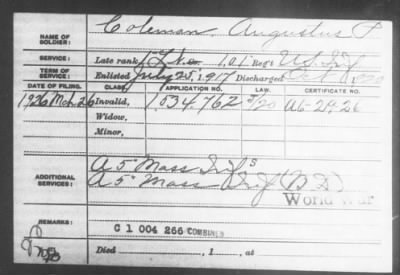 NAME OF SOLDIER: Coleman, Augustus P
SERVICE: Late rank, 101 Regt U.S. Inf
TERM OF SERVICE: Enlisted July 25, 1917 Discharged Oct 1, 1920
DATE OF FILING. CLASS. APPLICATION NO. LAW. CERTIFICATE NO.
1926 Mch. 26 Invalid, 1,534,762 A6-29-26
Widow,
Minor,
A 5" Mass Inf
ADDITIONAL SERVICES: A 5" Mass Inf (N G)
World War
REMARKS: C 1 004 266 COMBINED
Died , 1 , at